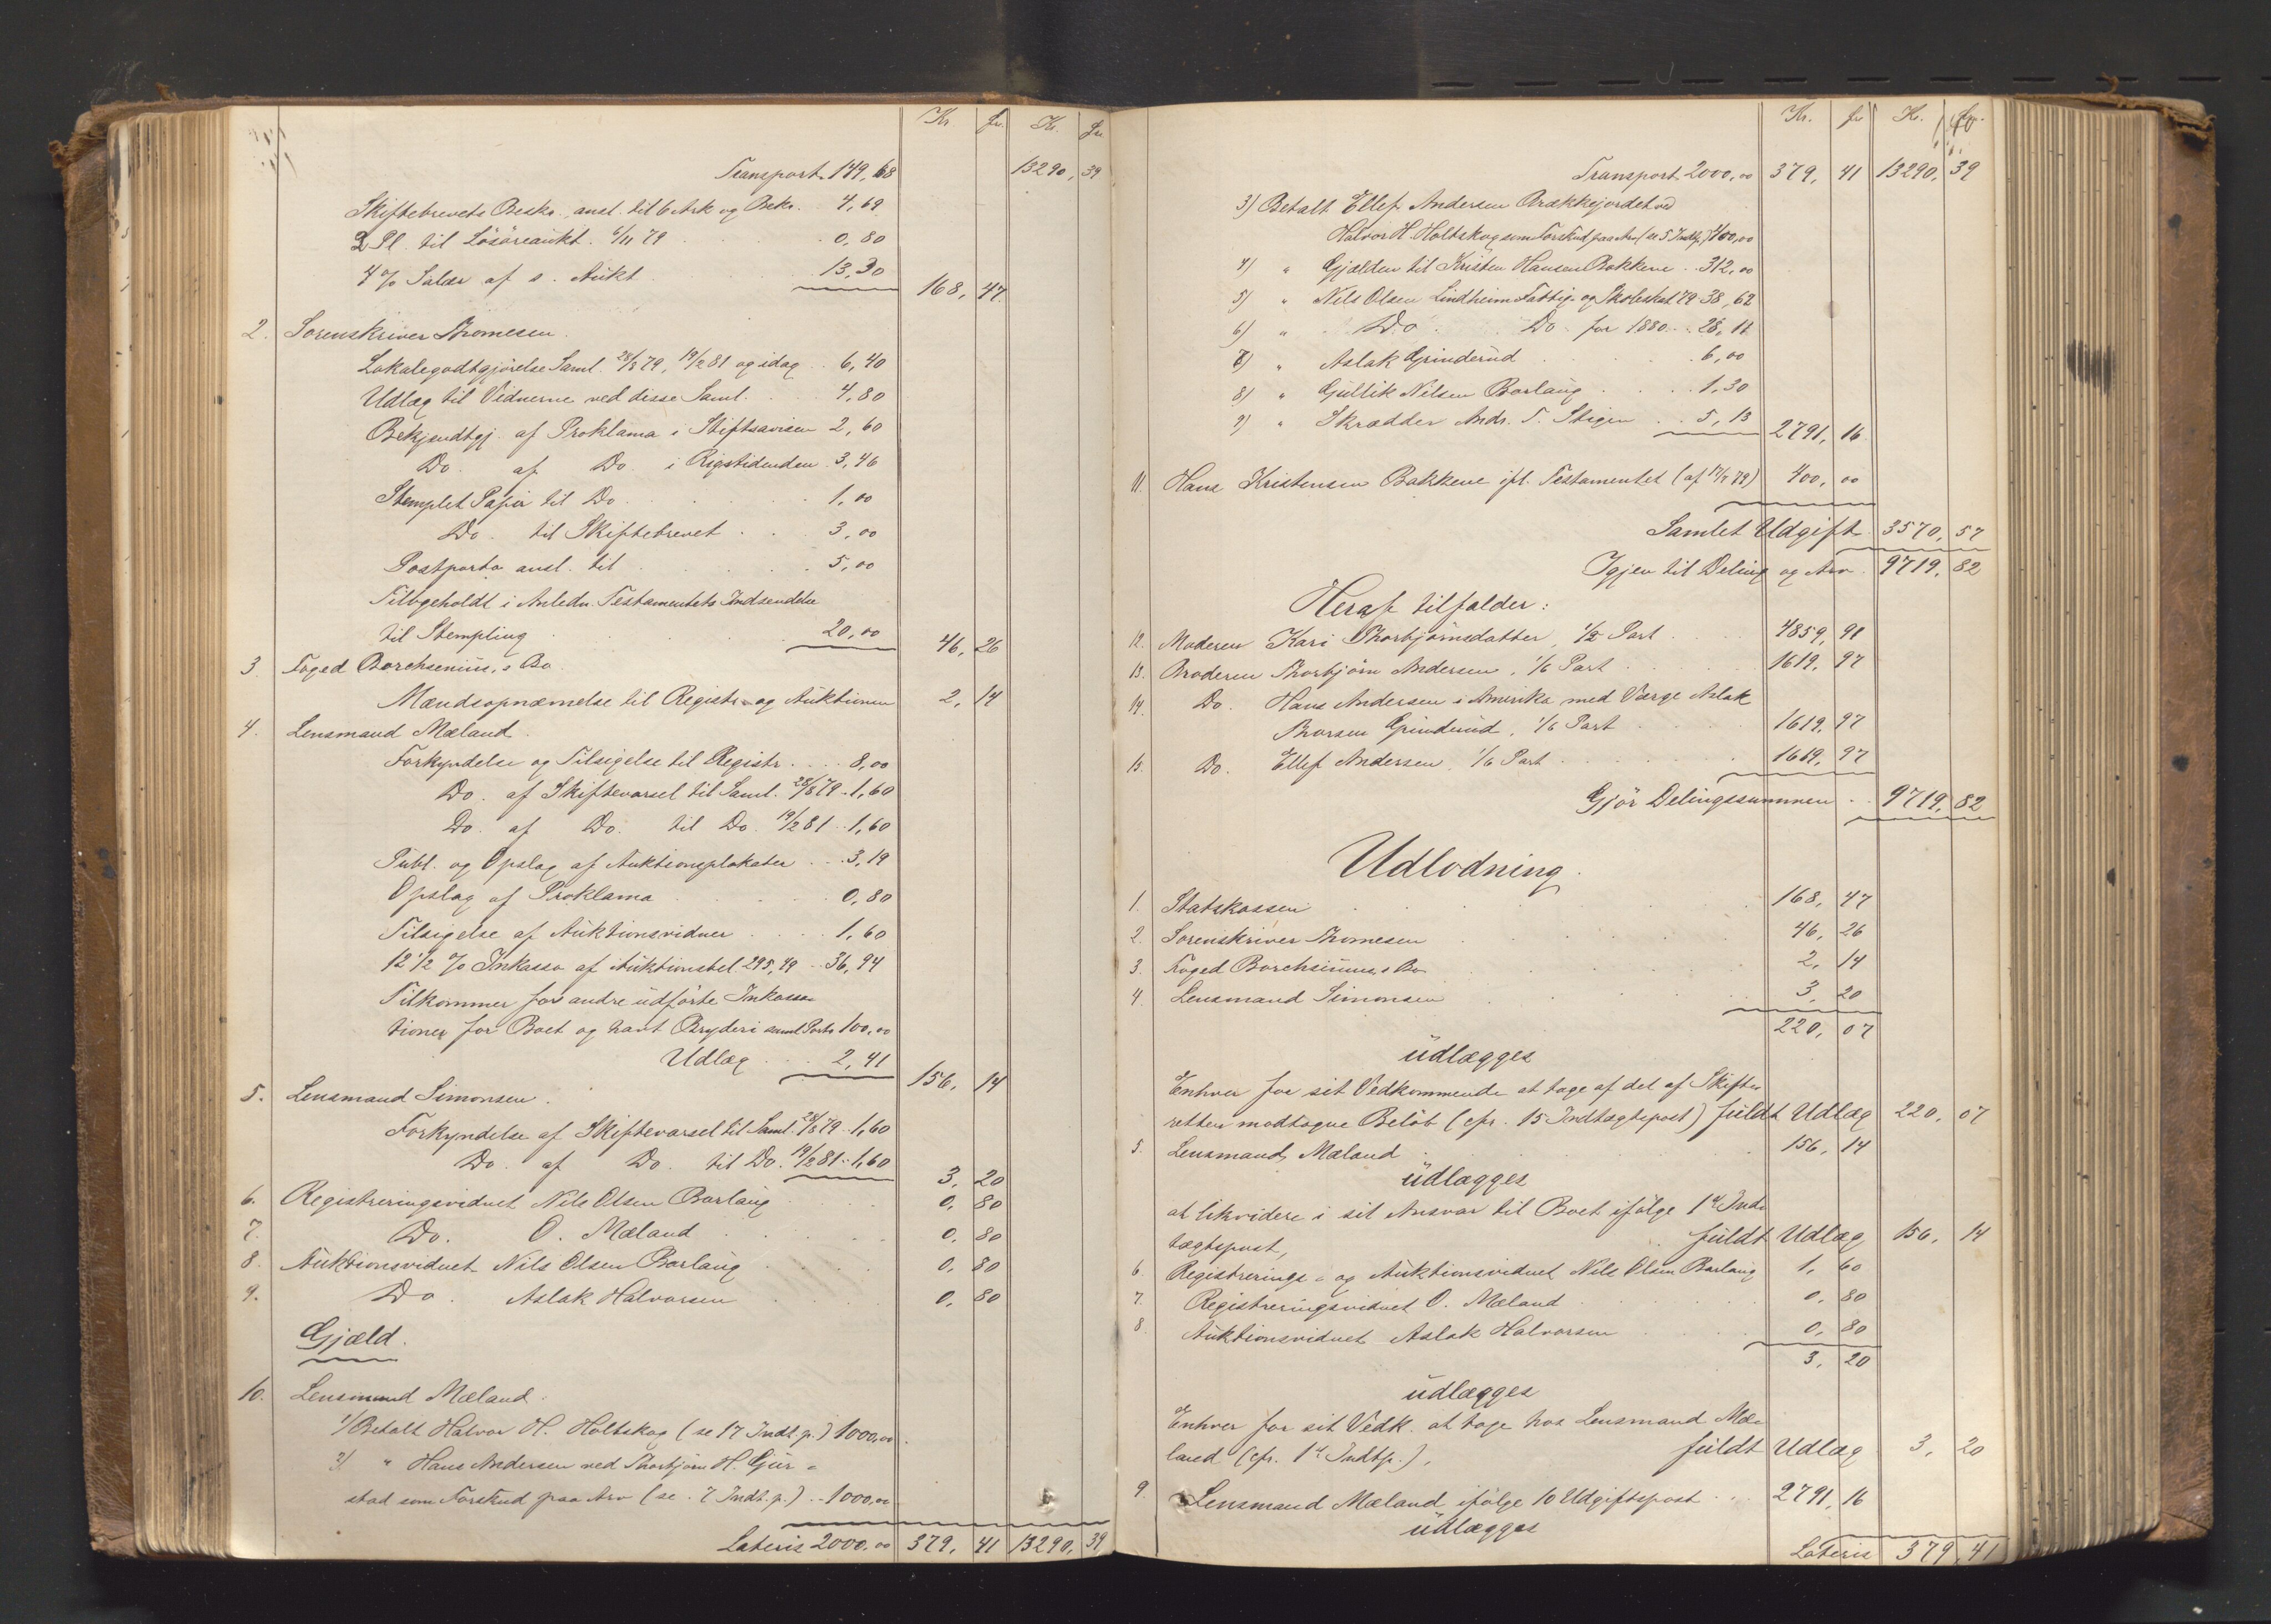 Kr. Ör. Kr. Ör.
Transport 149,68 13290, 39
Skiftebrevets Beskr., ansl. til 6 Ark og Bekr. 4,69
2 Pl. til Lösöreaukt. 6/11 79 . . 0,80
4 % Salær af s. Aukt. 13,30 168, 47
2. Sorenskriver Thomesen.
Lokalegodtgjörelse Saml. 28/8 79, 19/2 81 og idag . . 6,40
Udlæg til Vidnerne ved disse Saml. . 4,80
Bekjendtgj. af Proklama i Stiftsavisen 2,60
Do. af Do. i Rigstidenden . 3,46
Stemplet Papir til Do. . . . 1,00
Do. til Skiftebrevet . . . 3,00
Postporto ansl. til . . . . 5,00
Tilbgeholdt i Anledn. Testamentets Indsendelse
til Stempling . . . 20,00 46, 26
3. Foged Borchsenius, s Bo.
Mændsopnæmelse til Registr. og Auktionen 2, 14
4. Lensmand Mæland.
Forkyndelse og Tilsigelse til Registr. . . . 8,00
Do. af Skiftevarsel til Saml. 28/8 79 . 1,60
Do. af Do. til Do. 19/2 81 . . 1,60
Publ. og Opslag af Auktionsplakater . . . 3,19
Opslag af Proklama . . . 0,80
Tilsigelse af Auktionsvidner . . . . 1,60
12 1/2 % Inkasso af Auktionsbel. 295,49 . . 36,94
Tilkommer for andre udförte Inkassa-
tioner for Boet og havt Bryderi samt Porto 100,00
Udlæg . . . 2,41 156, 14
5. Lensmand Simonsen.
Forkyndelse af Skiftevarsel til Saml. 28/8 79 . 1,60
Do. af Do. til Do. 19/2 81 . . 1,60 3, 20
6. Registreringsvidnet Nils Olsen Barlaug . . 0, 80
7. Do. O. Mæland . . . 0. 80
8. Auktionsvidnet Nils Olsen Barlaug . . . 0, 80
9. Do. Aslak Halvorsen . . . 0, 80
Gjæld.
10. Lensmand Mæland.
1) Betalt Halvor H. Holtskog (se 17 Indt.p.) 1000,00
2) " Hans Andersen ved Thorbjörn H. Gur-
stad som Forskud paa Arv (se 7 Indt.p.) . . 1000,00
Lateris 2000,00 379, 41 13290, 39
Kr. Ör. Kr. Ör.
Transport 2000,00 379, 41 13290, 39
3) Betalt Ellef Andersen Brækkejordet ved
Halvor H. Holtskog som Forskud paa Arv (se 5 Indtp.) 400,00
4) " Gjælden til Kristen Hansen Bakkene . . 312,00
5) " Nils Olsen Lindheim Fattig- og Skoleskat 79 38,62
6) " Do. Do for 1880 . . 28,11
7) " Aslak Grinderud . . . 6,00
8) " Gullik Nilsen Barlaug . . . 1,30
9) " Skrædder Andr. T. Stigen . . 5,13 2791, 16
11. Hans Kristensen Bakkene ifl. Testamentet (af 17/7 79) 400, 00
Samlet Udgift 3570, 57
Igjen til Deling og Arv 9719, 82
Heraf tilfalder:
12. Moderen Kari Thorbjörnsdatter, 1/2 Part . 4859, 91
13. Broderen Thorbjörn Andersen, 1/6 Part . . . 1619, 97
14. Do. Hans Andersen i Amerika med Værge Aslak
Thorsen Grinderud, 1/6 Part . . 1619, 97
15. Do. Ellef Andersen, 1/6 Part . . . 1619, 97
Gjör Delingssummen . . 9719, 82
Udlodning.
1. Statskassen . . . 168, 47
2. Sorenskriver Thomesen . . . 46, 26
3. Foged Borchsenius, s Bo . . . 2, 14
4. Lensmand Simonsen . . . 3, 20
220, 07
udlægges
Enhver for sit Vedkommende at tage af det af Skifte-
retten modtagne Belöb (cfr. 15 Indtægtspost) fuldt Udlæg 220, 07
5. Lensmand Mæland . . . 156, 14
udlægges
at likvidere i sit Ansvar til Boet ifölge 1ste Ind-
tægtspost, fuldt Udlæg 156, 14
6. Registrerings- og Auktionsvidnet Nils Olsen Barlaug 1, 60
7. Registreringsvidnet O. Mæland . . . 0, 80
8. Auktionsvidnet Aslak Halvorsen . . . 0, 80
3, 20
udlægges
Enhver for sit Vedk. at tage hos Lensmand Mæ-
land (cfr. 1ste Indtp.), fuldt Udlæg 3, 20
9. Lensmand Mæland ifölge 10 Udgiftspost . . 2791, 16
udlægges
Lateris 379, 41